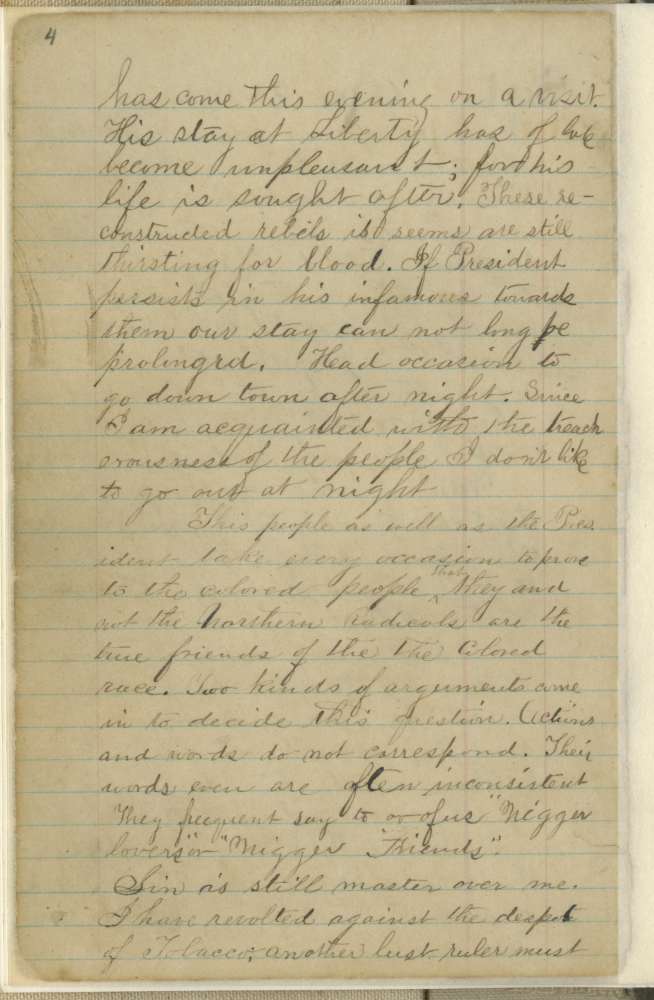 4
has come this evening on a visit.
His stay at Liberty has of late
become unpleasant; for his
life is sought after. These re-
constructed rebels it seems are still
thirsting for blood. If President
persists in his infamous towards
them our stay can not long be
prolongrd. Head occasion to
go down town after night. Since
I am acquainted with the treach
erousness of the people I don't like
to go out at night
This people as well as the Pres
ident take every occasion to prove
to the colored people that they and
not the Northern radicals are the
true friends of the the Colored
race. Two kinds of arguments come
in to decide this question. Actions
and words do not correspond. Their
words even are often inconsistent
They frequent say to or of us "Nigger
lovers" or "Nigger Friends".
Sin is still master over me.
I have revolted against the despot
of Tobacco; another lust ruler must